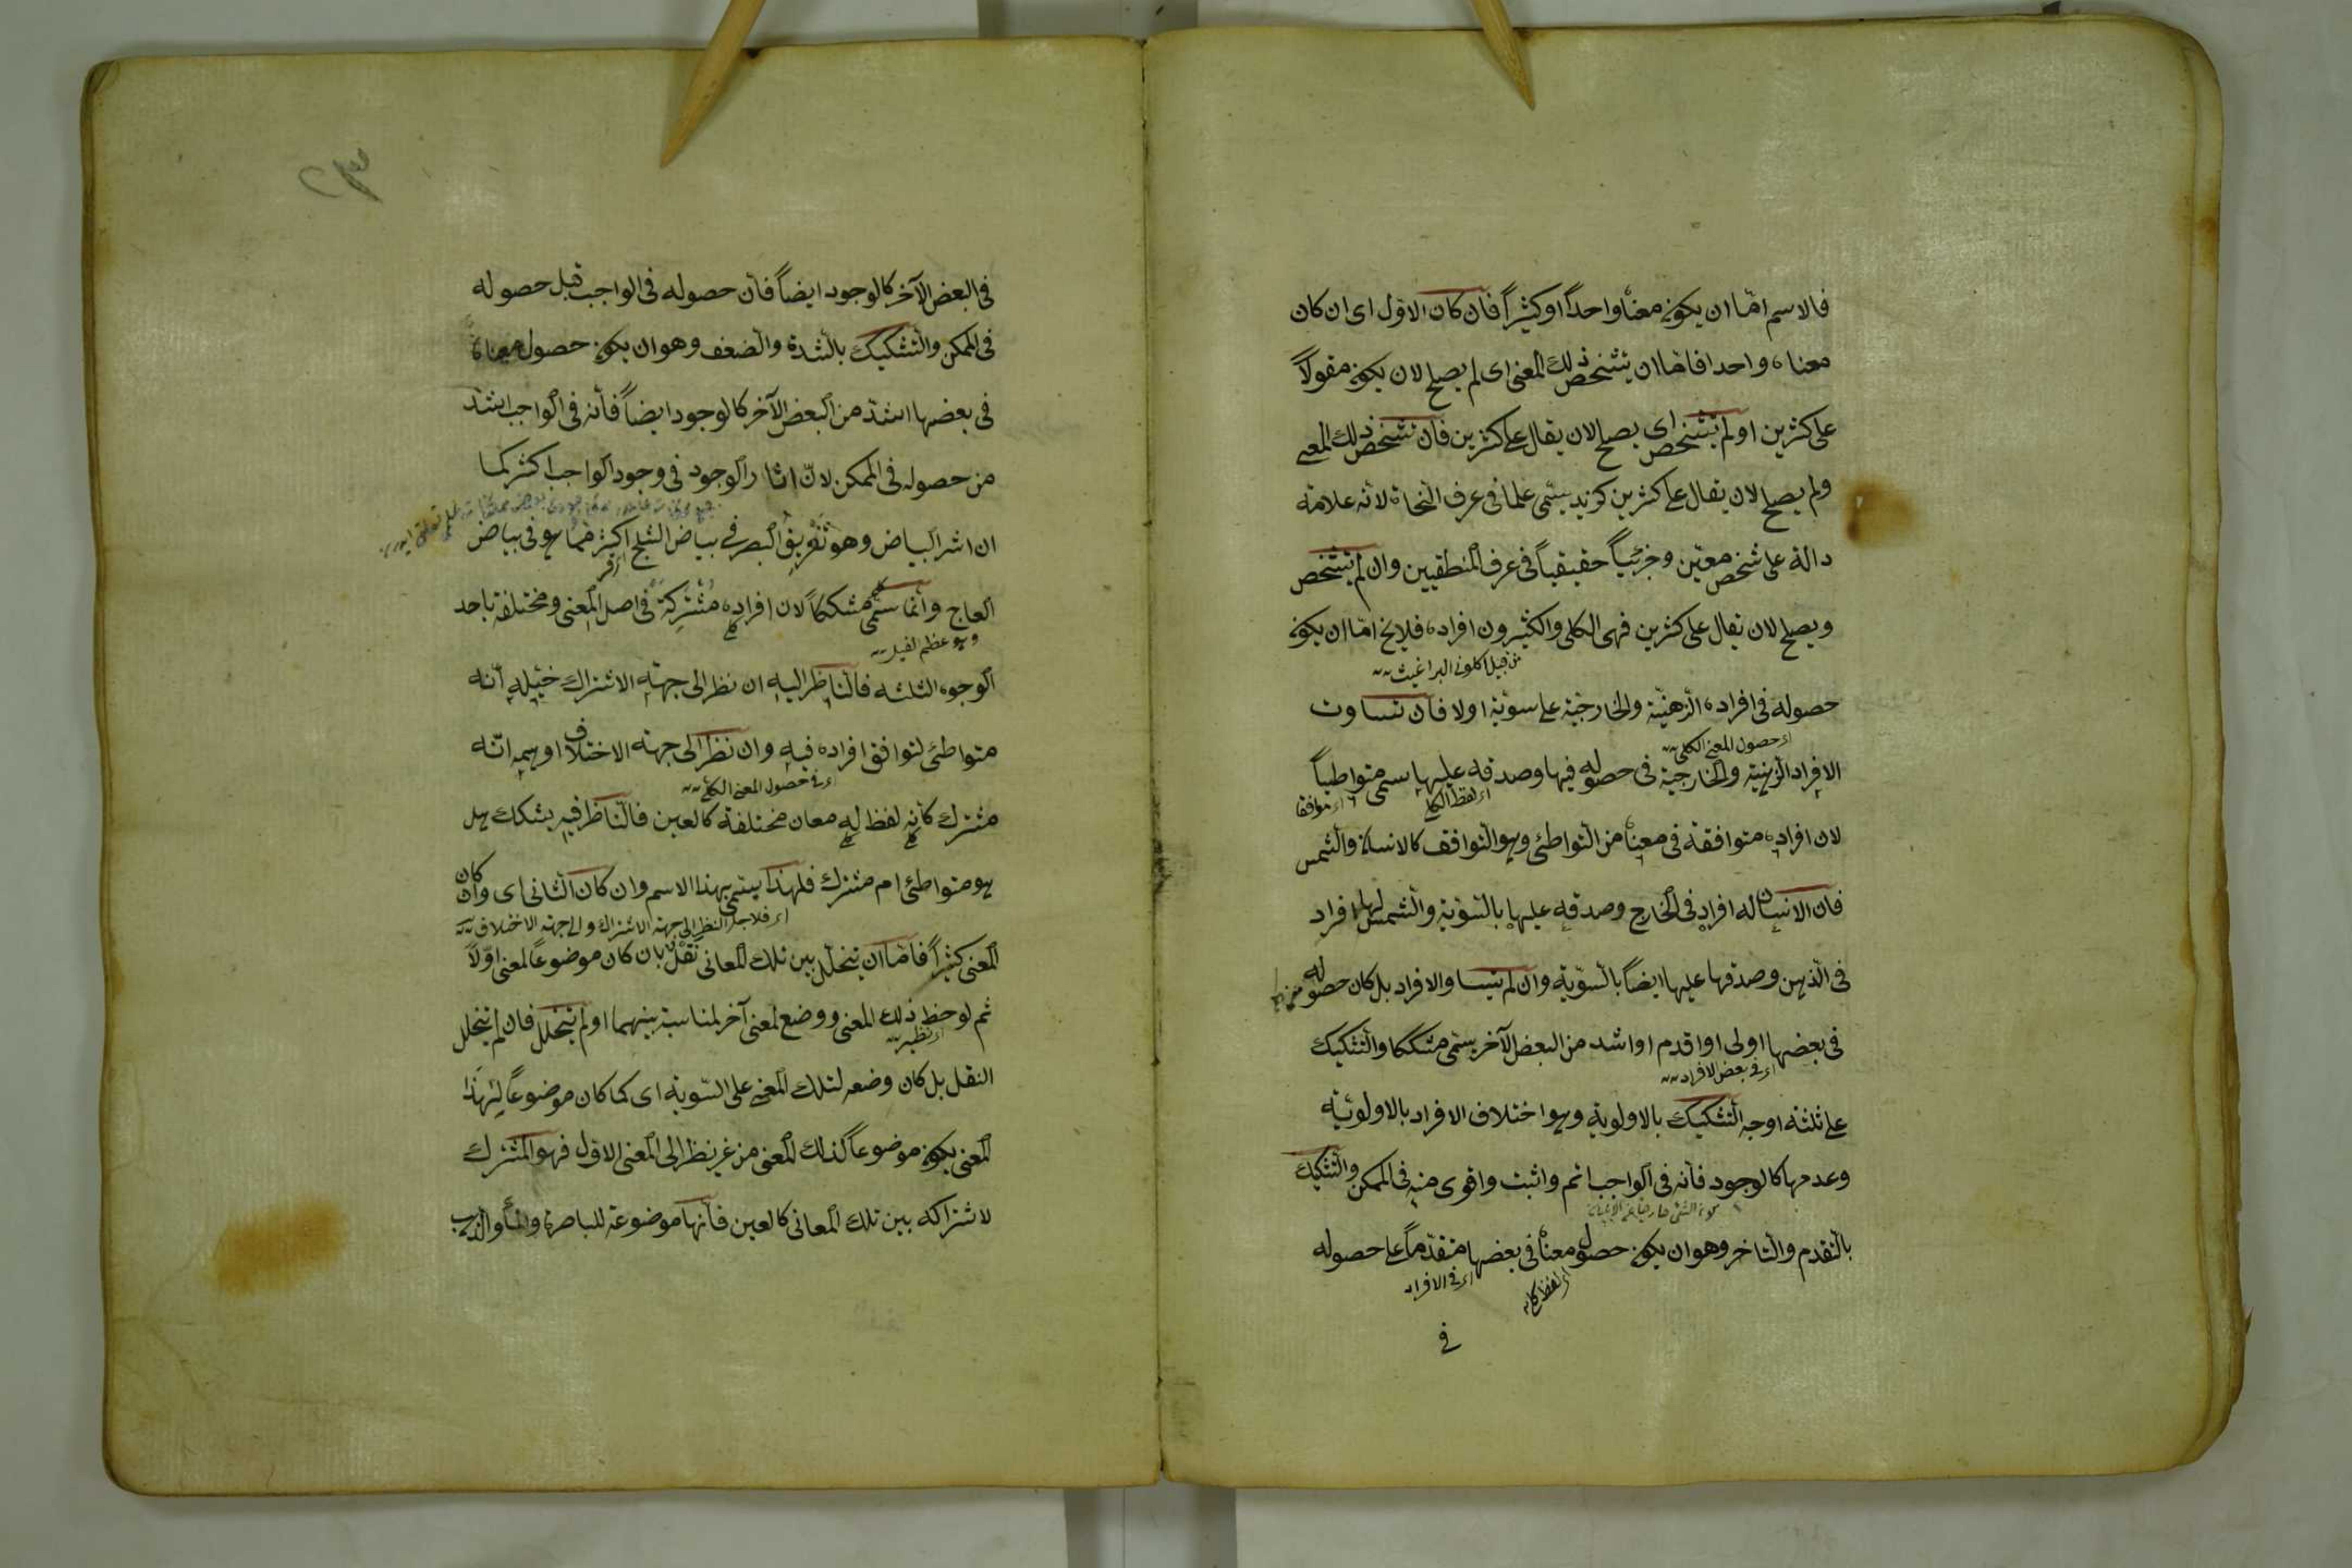 فالاسم امّا ان يكون معناه واحداً او كثيراً فان كان الاول اى ان كان
معناه واحدا فامّا ان يتشخص ذلك المعنى اى لم يصلح لان يكون مقولاً
على كثرين او لم يتشخص اى يصلح لان يقال على كثرين فان تشخص ذلك المعنى
ولم يصلح لان يقال على كثرين كزيد يسمّى علما فى عرف النحاة لانه علامة
دالة على شخص معيّن وجزئياً حقيقياً فى عرف المنطقيين وان لم يتشخص
ويصلح لان يقال على كثرين فهى الكلى والكثيرون افراده فلا يخ امّا ان يكون
من قبيل اكلونى البراغيث
حصوله فى افراده الذهنيّة والخارجيّة على سويّة اولا فان تساوت
اى حصول المعنى الكلى
الافراد الذهنية والخارجية فى حصوله فيها وصدقه عليها يسمى متواطياً
اى لفظ الكلى
اى موافقا
لان افراده متوافقة فى معناه من التواطئ وهو التوافق كالانسان والشمس
فان الانسان له افراد فى الخارج وصدقه عليها بالسّويّة والشمس لها افراد
فى الذهن وصدقها عليها ايضاً بالسّويّة وان لم يتساو الافراد بل كان حصوله
فى بعضها اولى او اقدم او اشد من البعض الآخر يسمّى مشككا والتشكيك
اى فى بعض الافراد
على ثلثة اوجه التشكيك بالاولوية وهو اختلاف الافراد بالاولويّة
وعدمها كالوجود فانه فى الواجب اتم واثبت واقوى منه فى الممكن والتشكيك
بالتقدم والتاخر وهو ان يكون حصول معناه فى بعضها متقدّماً على حصوله
اى فى الافراد
فى
فى البعض الآخر كالوجود ايضاً فان حصوله فى الواجب قبل حصوله
فى الممكن والتشكيك بالشدة والضعف وهو ان يكون حصول معناه
فى بعضها اشدّ من البعض الآخر كالوجود ايضاً فانه فى الواجب اشدّ
من حصوله فى الممكن لانّ اثار الوجود فى وجود الواجب اكثر كما
ان اثر البياض وهو تفريق البصر فى بياض الثلج اكثر مما هو فى بياض
العاج وانّما سمّى مشككاً لان افراده مشتركة فى اصل المعنى ومختلفة باحد
وهو عظم الفيل
الوجوه الثلثه فالناظر اليه ان نظر الى جهة الاشتراك خيّله انّه
متواطئ لتوافق افراده فيه وان نظر الى جهة الاختلاف اوهمه انّه
اى فى حصول المعنى الكلى
مشترك كانه لفظ له معان مختلفة كالعين فالناظر فيه يشكك هل
هو متواطئ ام مشترك فلهذا يسمّى بهذا الاسم وان كان الثانى اى وان كان
اى فلاجل النظر الى جهة الاشتراك والى جهة الاختلاف
المعنى كثيراً فامّا ان يتخلل بين تلك المعانى نقل بان كان موضوعاً لمعنى اوّلاً
ثم لوحظ ذلك المعنى ووضع لمعنى آخر لمناسبة بينهما او لم يتخلل فان لم يتخلل
اى نظير
النقل بل كان وضعه لتلك المعنى على السّوية اى كما كان موضوعاً لهذا
المعنى يكون موضوعاً لذلك المعنى من غير نظر الى المعنى الاول فهو المشترك
لاشتراكه بين تلك المعانى كالعين فانها موضوعة للباصرة والماء والذهب